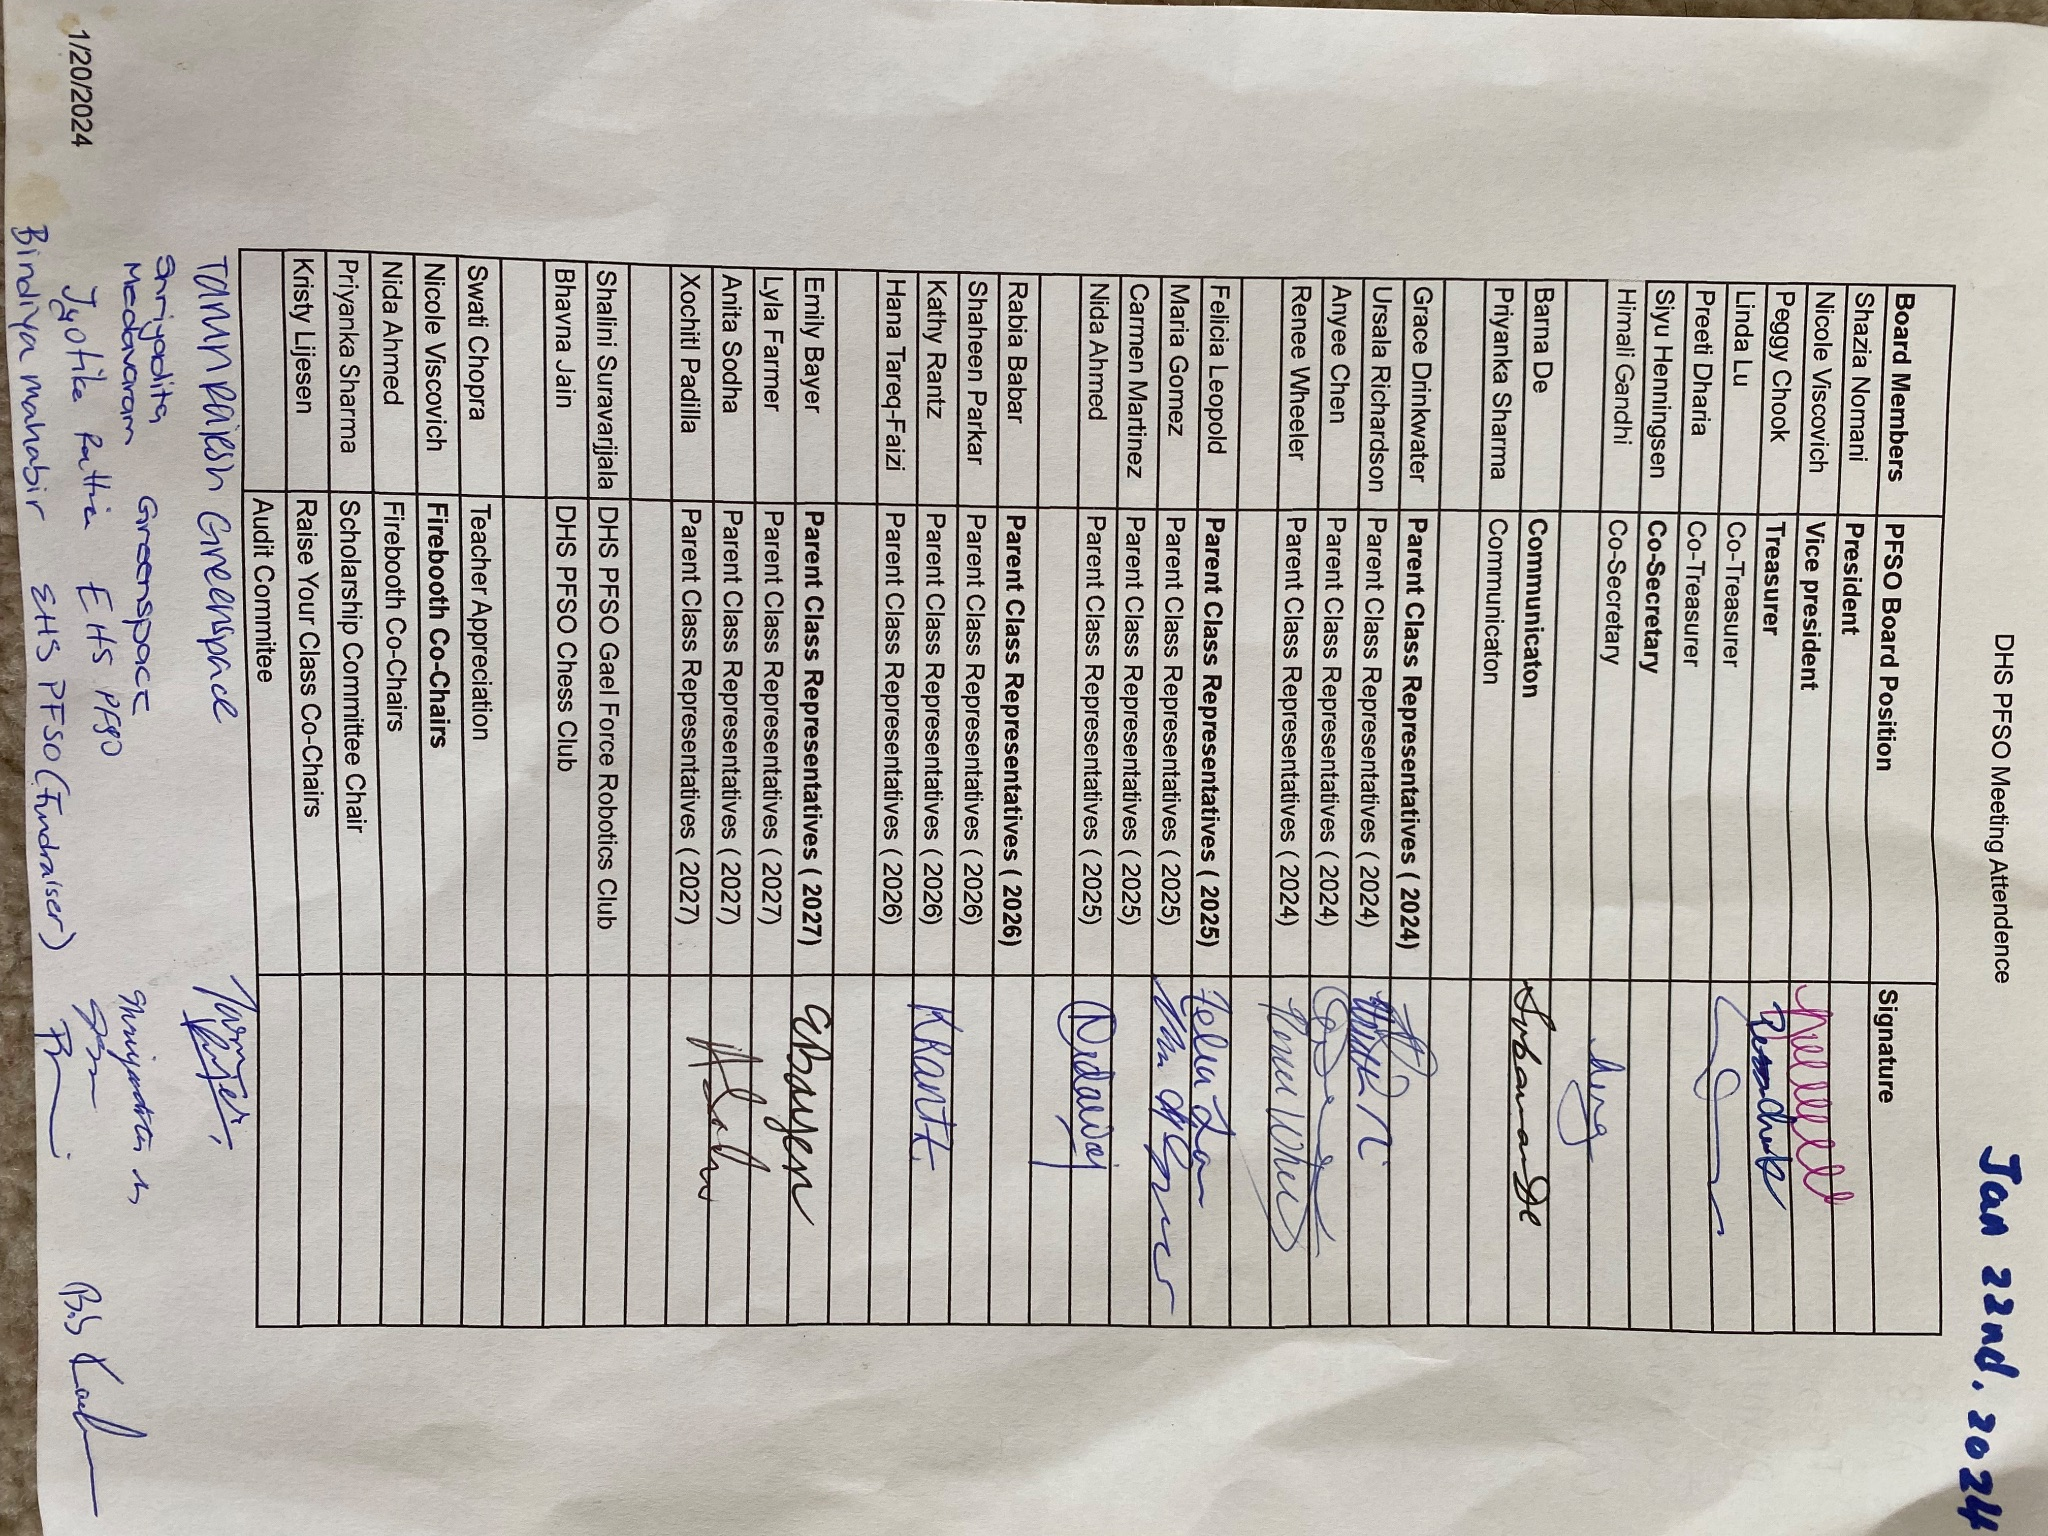 DHS PFSO Meeting Attendence
Jan 22nd. 2024
Board Members PFSO Board Position Signature
Shazia Nomani President
Nicole Viscovich Vice president
Peggy Chook Treasurer
Linda Lu Co-Treasurer
Preeti Dharia Co-Treasurer
Siyu Henningsen Co-Secretary
Himali Gandhi Co-Secretary
Barna De Communicaton
Priyanka Sharma Communicaton
Grace Drinkwater Parent Class Representatives ( 2024)
Ursala Richardson Parent Class Representatives ( 2024)
Anyee Chen Parent Class Representatives ( 2024)
Renee Wheeler Parent Class Representatives ( 2024)
Felicia Leopold Parent Class Representatives ( 2025)
Maria Gomez Parent Class Representatives ( 2025)
Carmen Martinez Parent Class Representatives ( 2025)
Nida Ahmed Parent Class Representatives ( 2025)
Rabia Babar Parent Class Representatives ( 2026)
Shaheen Parkar Parent Class Representatives ( 2026)
Kathy Rantz Parent Class Representatives ( 2026)
Hana Tareq-Faizi Parent Class Representatives ( 2026)
Emily Bayer Parent Class Representatives ( 2027)
Lyla Farmer Parent Class Representatives ( 2027)
Anita Sodha Parent Class Representatives ( 2027)
Xochitl Padilla Parent Class Representatives ( 2027)
Shalini Suravarjjala DHS PFSO Gael Force Robotics Club
Bhavna Jain DHS PFSO Chess Club
Swati Chopra Teacher Appreciation
Nicole Viscovich Firebooth Co-Chairs
Nida Ahmed Firebooth Co-Chairs
Priyanka Sharma Scholarship Committee Chair
Kristy Lijesen Raise Your Class Co-Chairs
Audit Commitee
Greenspace
Shriyadita
Medavaram Greenspace
Jyotika EHS PFSO
Bindiya Mahabir EHS PFSO (Fundraiser)
1/20/2024